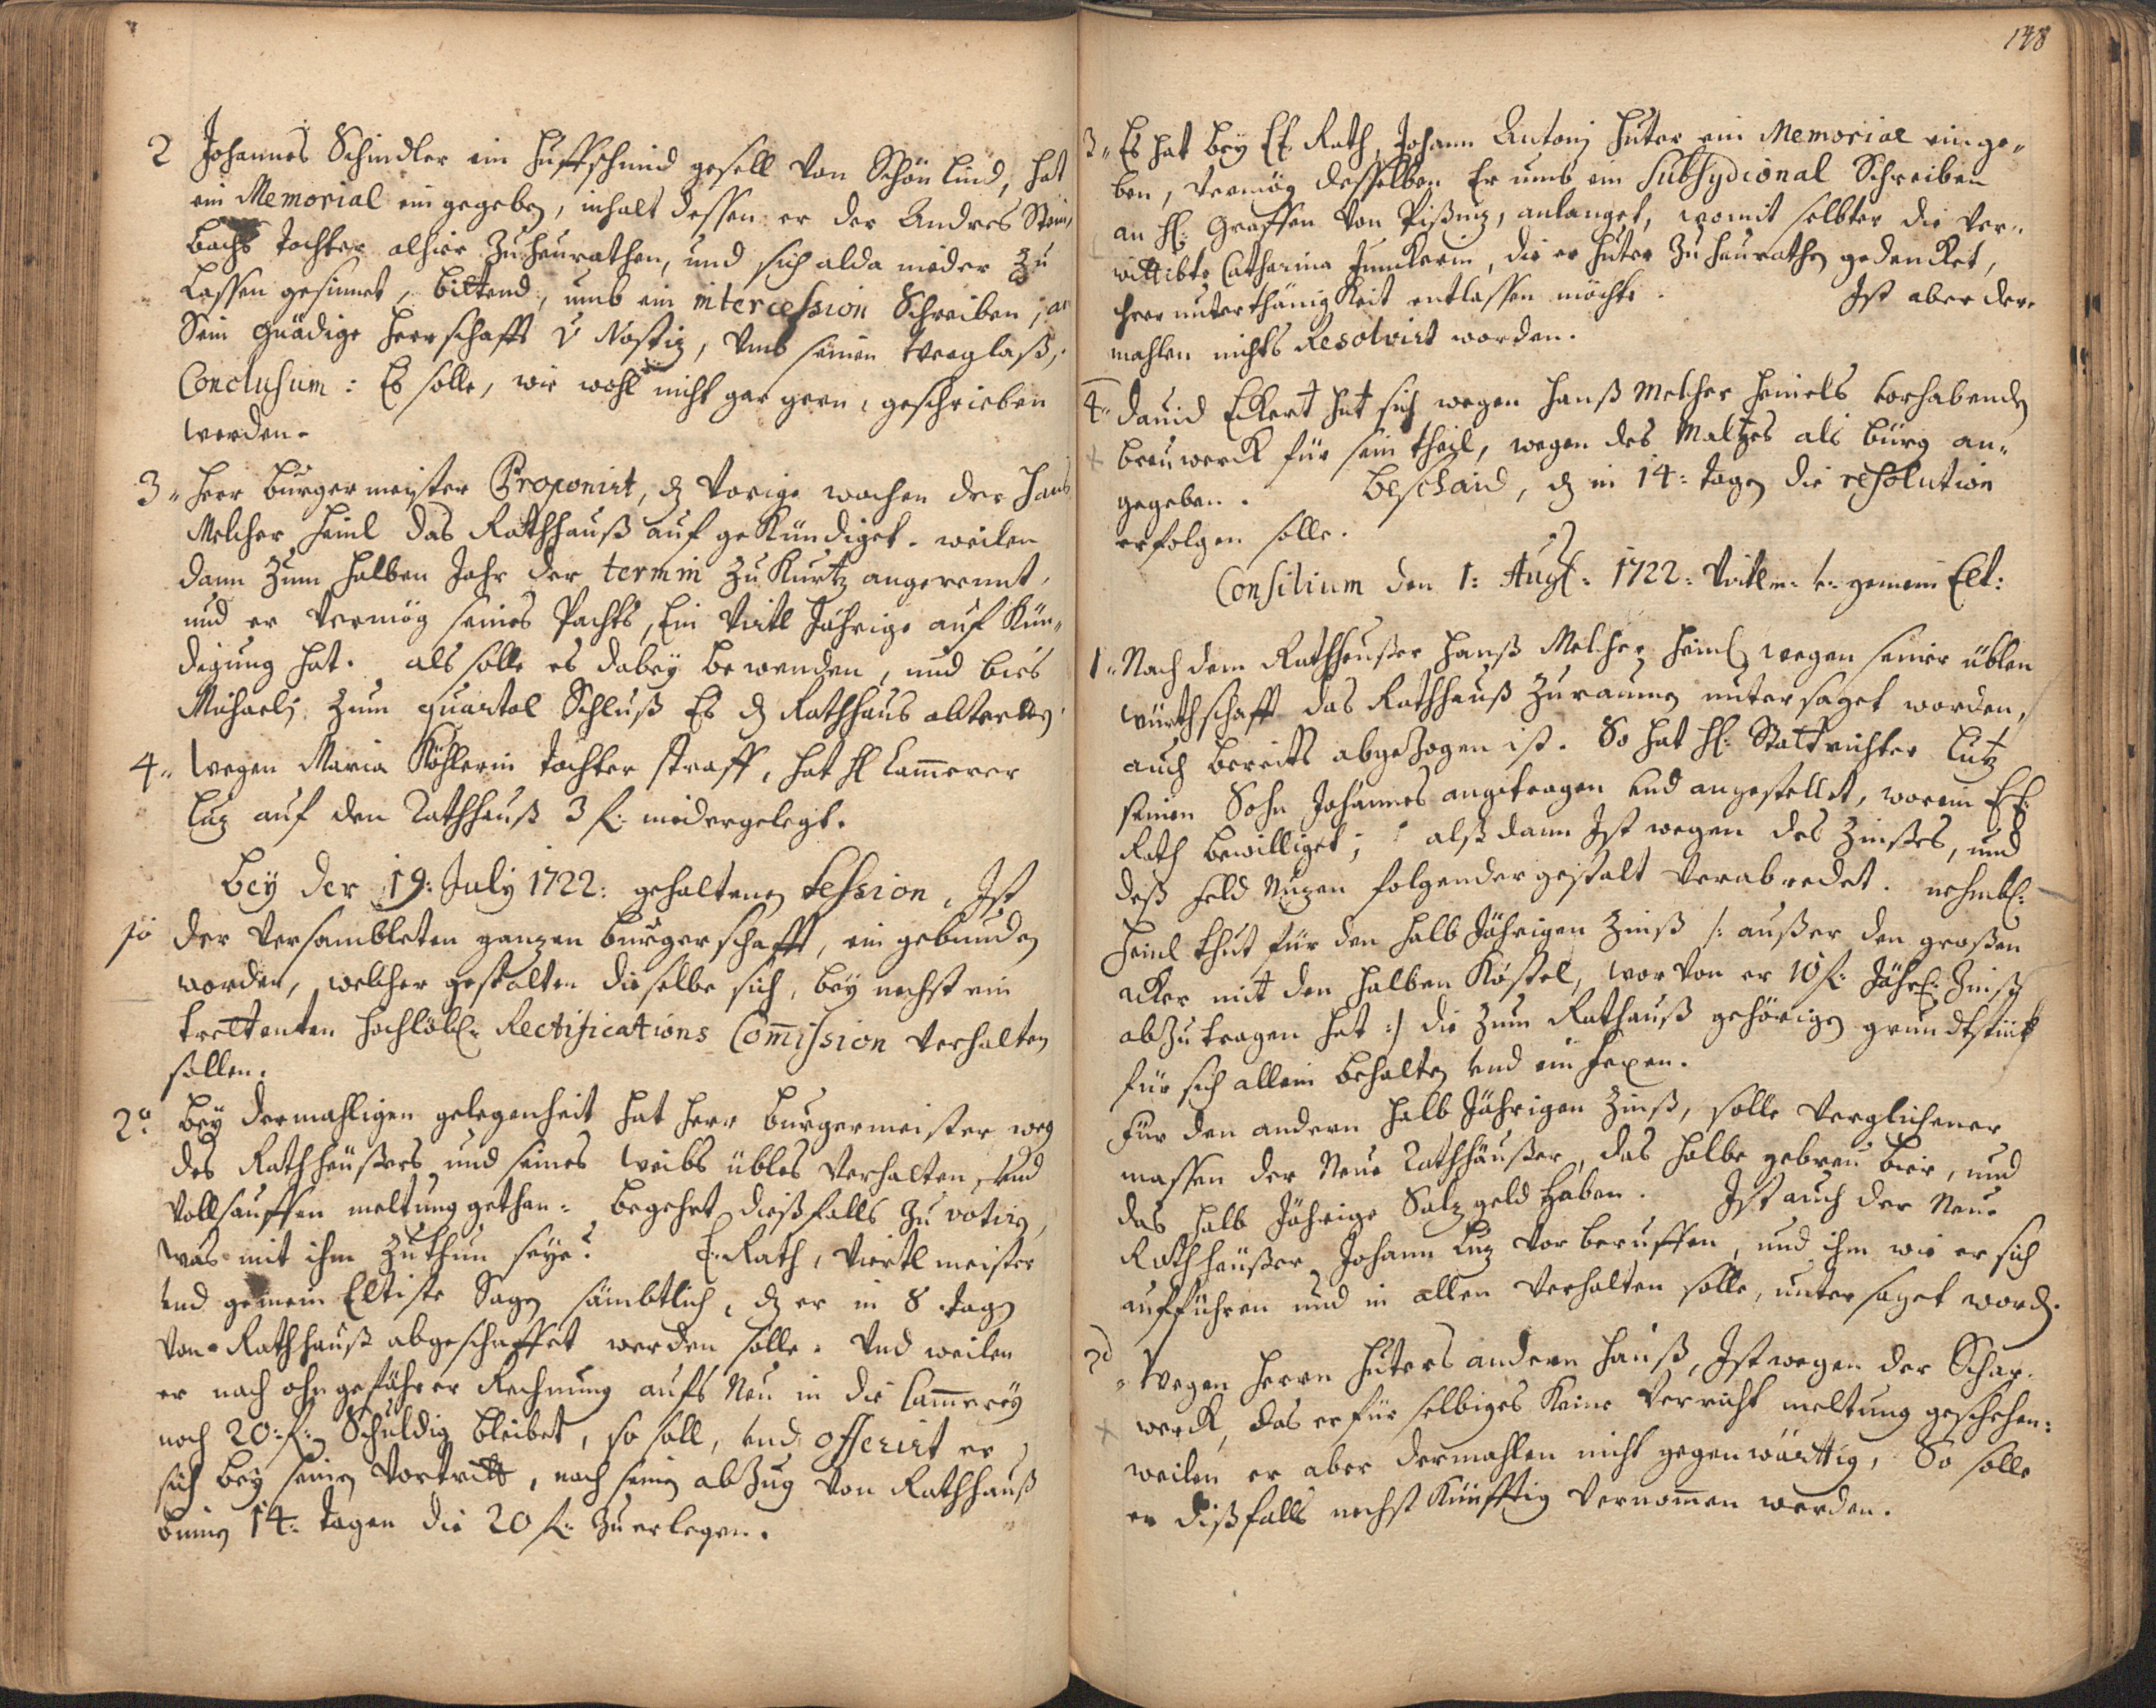 2 Johannes Schindler ein Huffschmid gesell von Schön Lind, hat
ein Memorial ein gegeben, inhalt dessen er der Andres Stein¬
bachs Tochter alhier zu heurathen, und sich alda nieder zu
Lassen gesinnet, bittend, umb ein intercession Schreiben, an
Sein gnädige Herrschafft v Nostiz, umb seinen Weeglaß,
Conclusum: Es solle, wie wohl nicht gar gern, geschrieben
werden.
3„ Herr burgermeister Proponirt, dz vorige wochen der Hans
Melcher Heinl das Rathhauß auf gekündiget. weilen
dann zum halben Jahr der termin zu kurtz angerennt,
und er vermög seines Pachts, Ein Virtl Jährige auf kün„
digung hat. als solle es dabey bewenden, und bies
Michaeli zum quartal Schluß Es dz Rathhaus abtretten
4„ Wegen Maria Köhlerin Tochter straff, hat hl Cammerer
Luz auf den Rathhauß 3 f: nidergelegt.
Bey der 19: July 1722: gehaltenen Session, Ist
1o der Versambleten ganzen burgerschafft, ein gebunden
worden, welcher gestalten dieselbe sich, bey nechst ein
trettenten Hochlöbl: Rectifications Commission verhalten
sollen.
2o bey dermahligen gelegenheit hat Herr burgermeister weg
des Rathheußers und seines Weibs übles verhalten, und
vollsauffen meltung gethan: begehrt dießfalls zu votirn,
was mit ihm zu thun seye? E: Rath, Viertl meister
und gemein Eltiste Sagen sämbtlich, dz er in 8 tagen
von Rathhauß abgeschaffet werden solle. Und weilen
er nach ohngefährer Rechnung aufs Neu in die Cammerey
noch 20: f: Schuldig bleibet, so soll, und offerirt er
sich bey seinen Vortritt, nach seinen abzug von Rathhauß
binnen 14: tagen die 20 f: zu erlegen.
148
3„ Es hat bey El: Rath, Johann Antoni Huter ein Memorial einge„
ben, vermög desselben Er umb ein Subsydional Schreiben
an hl: Graffen von anlanget, womit selbter die ver„
wittibte Catharina Junckerin, die er Huter zu heurathen gedencket,
Ihrer unterthänigkeit entlassen möchte. Ist aber der„
mahlen nichts Resolvirt worden.
4„ David Eckert hat sich wegen Hanß Melcher Heinels vorhabenden
breuwerck für sein theil, wegen des Maltzes als bürg an„
gegeben. beschaid, dz in 14: tagen die resolution
erfolgen solle.
Consilium den 1: Augl: 1722: Virtlm: v: gemein Elt:
1„ Nach dem Rathheußer Hanß Melcher Heinl wegen seiner üblen
würthschafft das Rathhauß zu raumen untersaget worden,
auch bereits abgezogen ist. So hat hl: Stattrichter Lutz
seinen Sohn Johannes angetragen und angestellet, worein El:
Rath bewilliget; alß dann Ist wegen des Zinßes, und
deß Feld Nuzen folgender gestalt verabredet. nehmbl:
Heinl thut für den halb Jährigen Zinß /: außer den großen
acker mit den halben Köstel, wor von er 10 f: Jährl: Zinß
abzutragen hat :/ die zum Rathauß gehörigen grundtstück
für sich allein behalten und ein fexen.
Für den andern halb Jährigen Zinß, solle verglichener
massen der Neue Rathhäußer, das halbe gebreu bier, und
das halb Jährige Salz geld haben. Ist auch der Neue
Rathheußer Johann Luz vor beruffen, und ihm wie er sich
aufführen und in allen verhalten solle, unter saget word:
2do„ Wegen Herrn Huters andern Hauß, Ist wegen der Schar„
werck, das er für selbiges keine verricht meltung geschehen:
weilen er aber dermahlen nicht gegenwärttig, So solle
er dißfalls nechst künfftig vernommen werden.